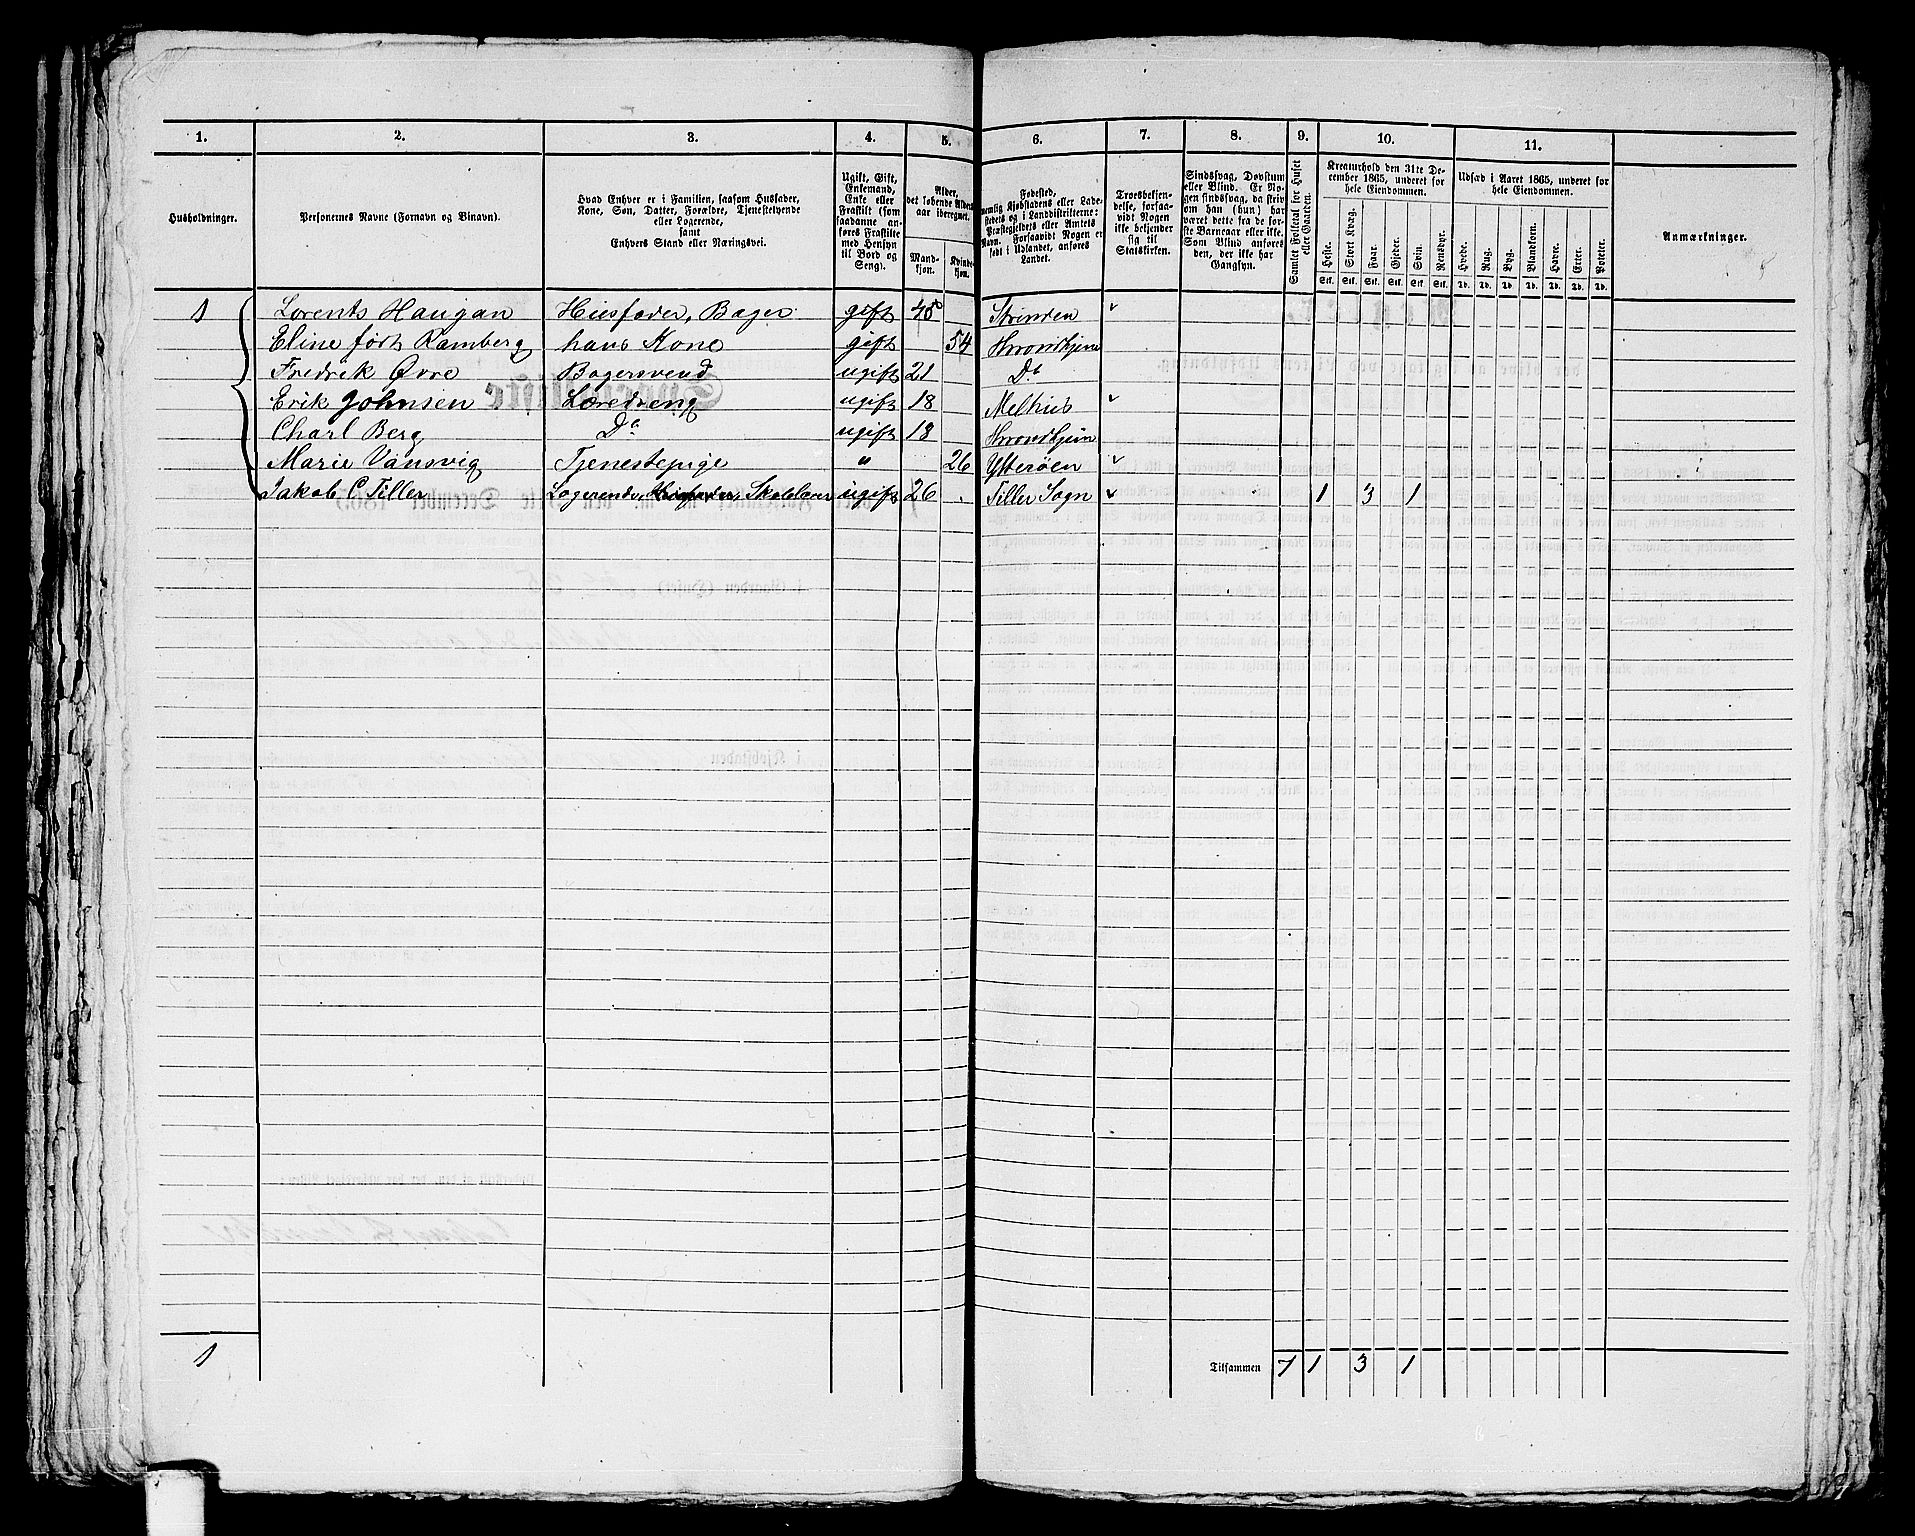 1. 2. 3. 4. 5. 6. 7. 8. 9. 10. 11.
Husholdninger.
Personernes Navne (Fornavn og Binavn).
Hvad Enhver er i Familien, saasom Husfader,
Kone, Søn, Datter, Forældre, Tjenestetyende
eller Logerende,
samt
Enhvers Stand eller Næringsvei.
Ugift, Gift,
Enkemand,
Enke eller
Fraskilt (som
saadanne an-
føres Fraskilte
med Hensyn
til Bord og
Seng).
Alder,
det løbende Alders-
aar iberegnet.
Mand-
kjøn.
Kvinde-
kjøn.
Fødested,
nemlig Kjøbstadens eller Lade-
stedets og i Landdistrikterne:
Præstegjeldets eller Amtets
Navn. Forsaavidt Nogen er
født i Udlandet, anføres
Landet.
Troesbekjen-
delse, forsaa-
vidt Nogen
ikke bekjender
sig til
Statskirken.
Sindssvag, Døvstum
eller Blind. Er No-
gen sindssvag, da skriv
om han (hun) har
været dette fra de før-
ste Barneaar eller ikke.
Som Blind anføres
den, der ikke har
Gangsyn.
Samlet Folketal for Huset
eller Gaarden.
Kreaturhold den 31te De-
cember 1865, underet for
hele Eiendommen.
Heste. Stort Kvæg. Faar. Gjeder. Svin. Rensdyr.
Stk. Stk. Stk. Stk. Stk. Stk.
Udsæd i Aaret 1865, underet for
hele Eiendommen.
Hvede. Rug. Byg. Blandkorn. Havre. Erter. Poteter.
Td. Td. Td. Td. Td. Td. Td.
Anmærkninger.
1 Lorents Haugan Huusfader, Bager gift 45 Strinden
Eline født Ramberg hans Kone gift 54 Throndhjem
Fredrik Øvre Bagersvend ugift 21 Do
Erik Johnsen Læredreng ugift 18 Melhus
Charl Berg Do ugift 18 Throndhjem
Marie Vansvig Tjenestepige " 26 Ytterøen
Jakob C Tiller Logerende, Skolelærer ugift 26 Tiller Sogn 1 3 1
1 Tilsammen 7 1 3 1